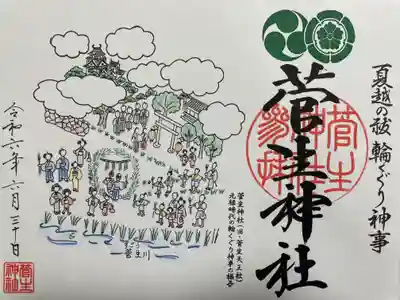 夏越の祓 輪くぐり神事
菅生神社
菅生神社（旧・菅生天王社）
元禄時代の輪くぐり神事の様子
菅生川
令和六年六月三十日
菅生
神社